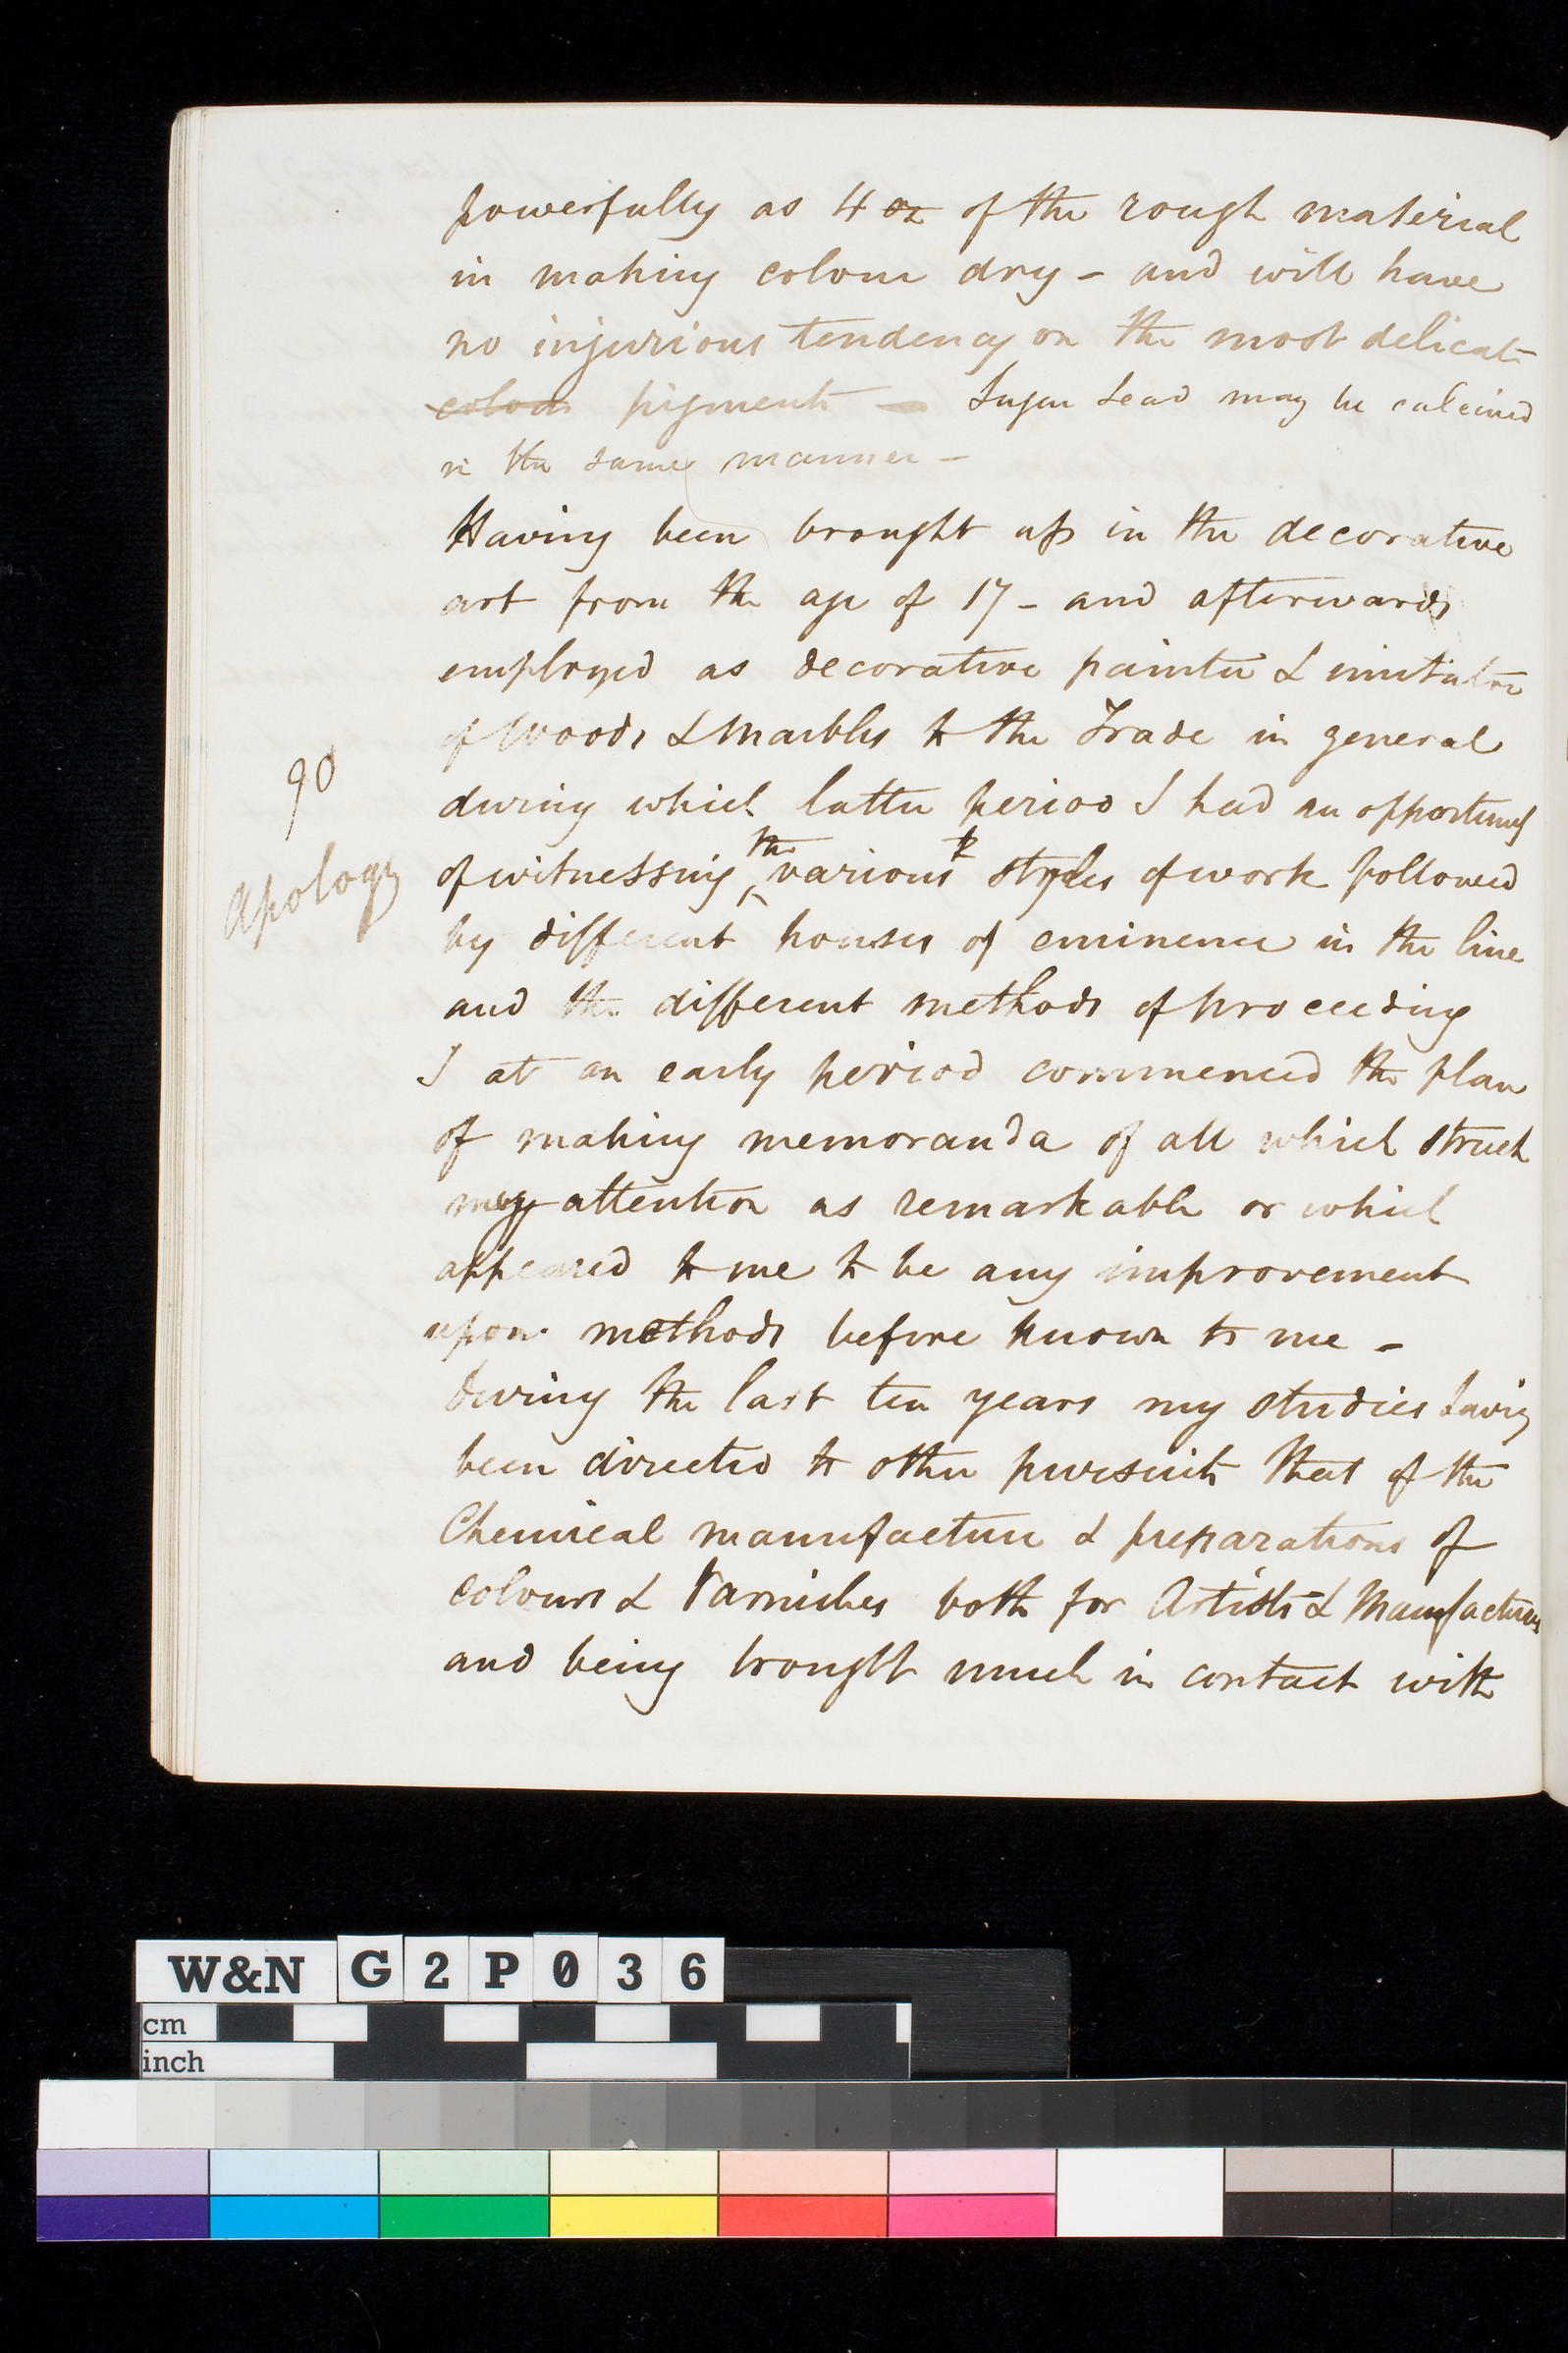 powerfully as 4 oz of the rough material
in making colour dry - and will have
no injurious tendency on the most delicate
colour pigments — Sugar Lead may be calcined
in the same manner -
Having been brought up in the decorative
art from the age of 17 - and afterwards
employed as decorative painter & imitator
of Woods & Marbles to the Trade in general
90
during which latter period I had an opportunity
the
of witnessing various styles of work followed
Apology
by different houses of eminence in the line
and the different methods of proceeding
I at an early period commenced the plan
of making memoranda of all which struck
my attention as remarkable or which
appeared to me to be any improvement
upon methods before known to me -
During the last ten years my studies having
been directed to other pursuits that of the
Chemical manufacture & preparations of
colours & Varnishes both for Artists & Manufacturers
and being brought much in contact with
W&N G2P036
cm
inch